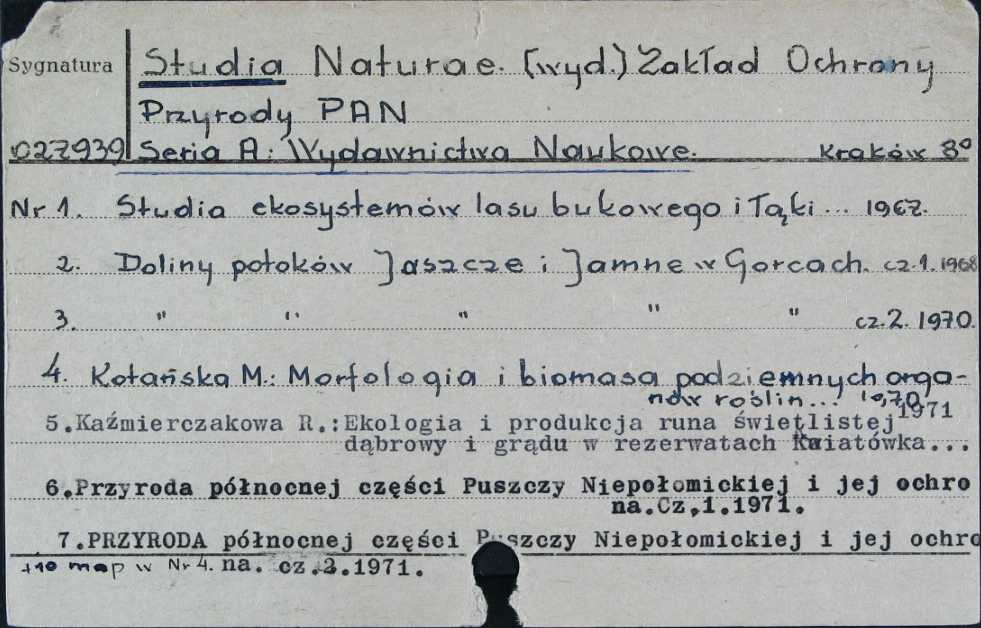 Sygnatura Studia Naturae. (wyd.) Zakład Ochrony
Przyrody PAN
027939 Seria A: Wydawnictwa Naukowe. Kraków 8°
Nr 1. Studia ekosystemów lasu bukowego i łąki... 1967.
2. Doliny potoków Jaszcze i Jamne w Gorcach. cz.1. 1968
3. " " " " " cz.2. 1970.
4. Kotańska M.: Morfologia i biomasa podziemnych orga-
nów roślin... 1970
5.Kaźmierczakowa R.:Ekologia i produkcja runa świetlistej 1971
dąbrowy i grądu w rezerwatach Kwiatówka...
6.Przyroda północnej części Puszczy Niepołomickiej i jej ochro
na.Cz,1.1971.
7.PRZYRODA północnej części Puszczy Niepołomickiej i jej ochro
+10 map w Nr 4. na. cz.2.1971.